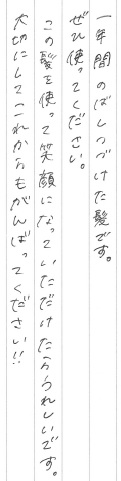 一年間のばしつづけた髪です。
ぜひ使ってください。
この髪を使って笑顔になっていただけたらうれしいです。
大切にしてこれからもがんばってください!!